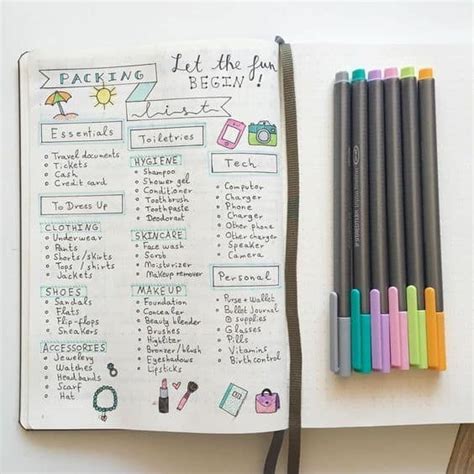 PACKING
list
Let the fun
BEGIN!
Essentials
Travel documents
Tickets
Cash
Credit card
To Dress Up
CLOTHING
Underwear
Pants
Shorts/skirts
Tops / shirts
Jackets
SHOES
Sandals
Flats
Flip-flops
Sneakers
ACCESSORIES
Jewelery
Watches
Headbands
Scarf
Hat
Toiletries
HYGIENE
Shampoo
Shower gel
Conditioner
Toothbrush
Toothpaste
Deodorant
SKINCARE
Face wash
Scrub
Moisturizer
Makeup remover
MAKEUP
Foundation
Concealer
Beauty blender
Brushes
Highliter
Bronzer/blush
Eyeshadows
Lipsticks
Tech
Computer
Charger
Phone
Charger
Other phone
Other charger
Speaker
Camera
Personal
Purse + Wallet
Bullet Journal
& supplies
Glasses
Pills
Vitamins
Birth control
STAEDTLER